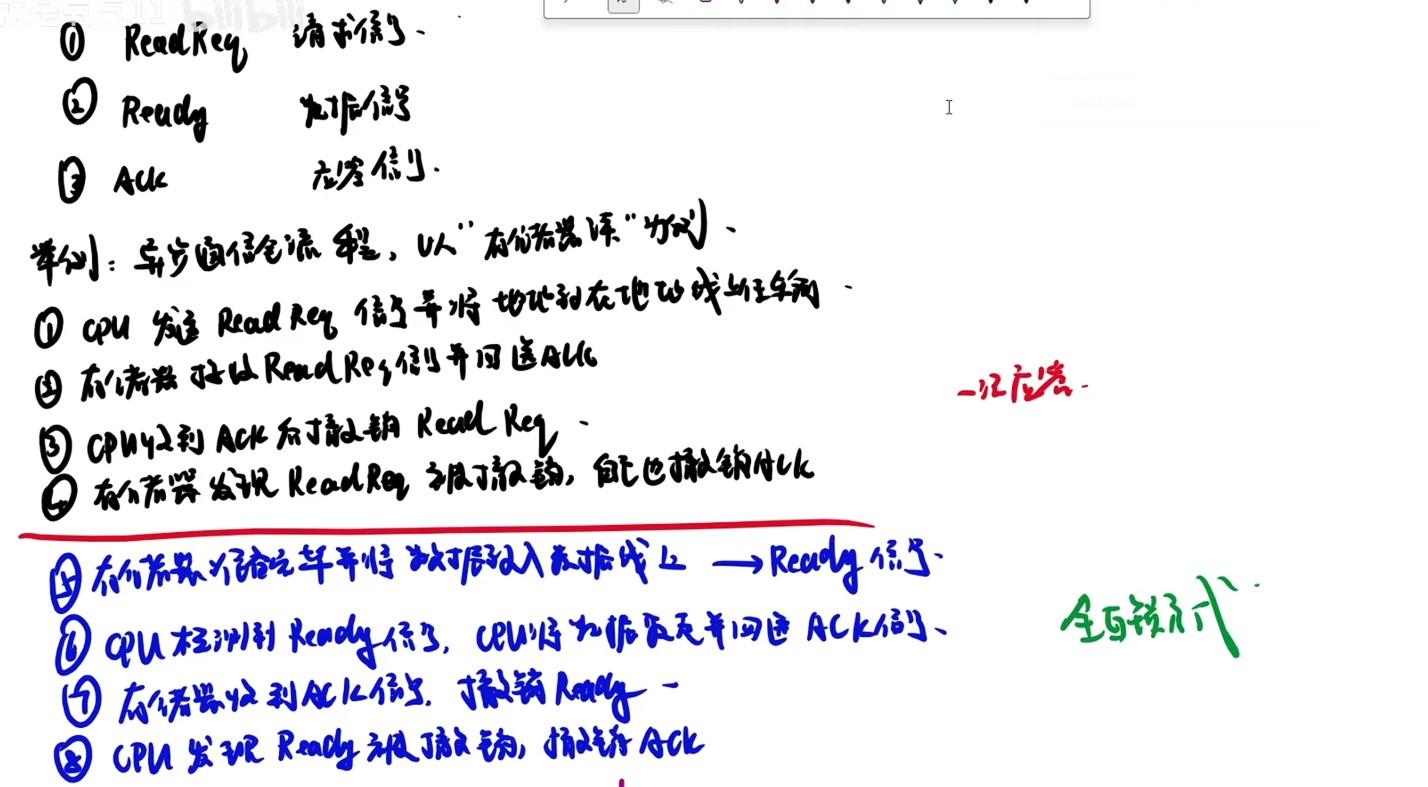 bilibili
① ReadReq 请求信号.
② Ready 数据信号
③ Ack 应答信号.
举例: 异步通信全流程, 以"存储器读"为例、
① CPU 发送 ReadReq 信号并将地址放在地址线上
② 存储器接收ReadReq信号并回送Ack
一次应答.
③ CPU收到 ACK 后撤销 Read Req
④ 存储器发现 ReadReq 被撤销, 自己也撤销Ack
⑤ 存储器准备完毕并将数据放入数据线上 → Ready 信号.
全互锁方式
⑥ CPU 检测到 Ready信号, CPU将数据取走并回送 ACK信号、
⑦ 存储器收到ACK信号. 撤销 Ready
⑧ CPU 发现 Ready 被撤销, 撤销 ACK